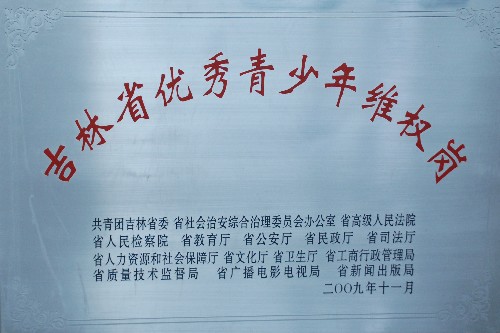 吉林省优秀青少年维权岗
共青团吉林省委 省社会治安综合治理委员会办公室 省高级人民法院
省人民检察院 省教育厅 省公安厅 省民政厅 省司法厅
省人力资源和社会保障厅 省文化厅 省卫生厅 省工商行政管理局
省质量技术监督局 省广播电影电视局 省新闻出版局
二〇〇九年十一月